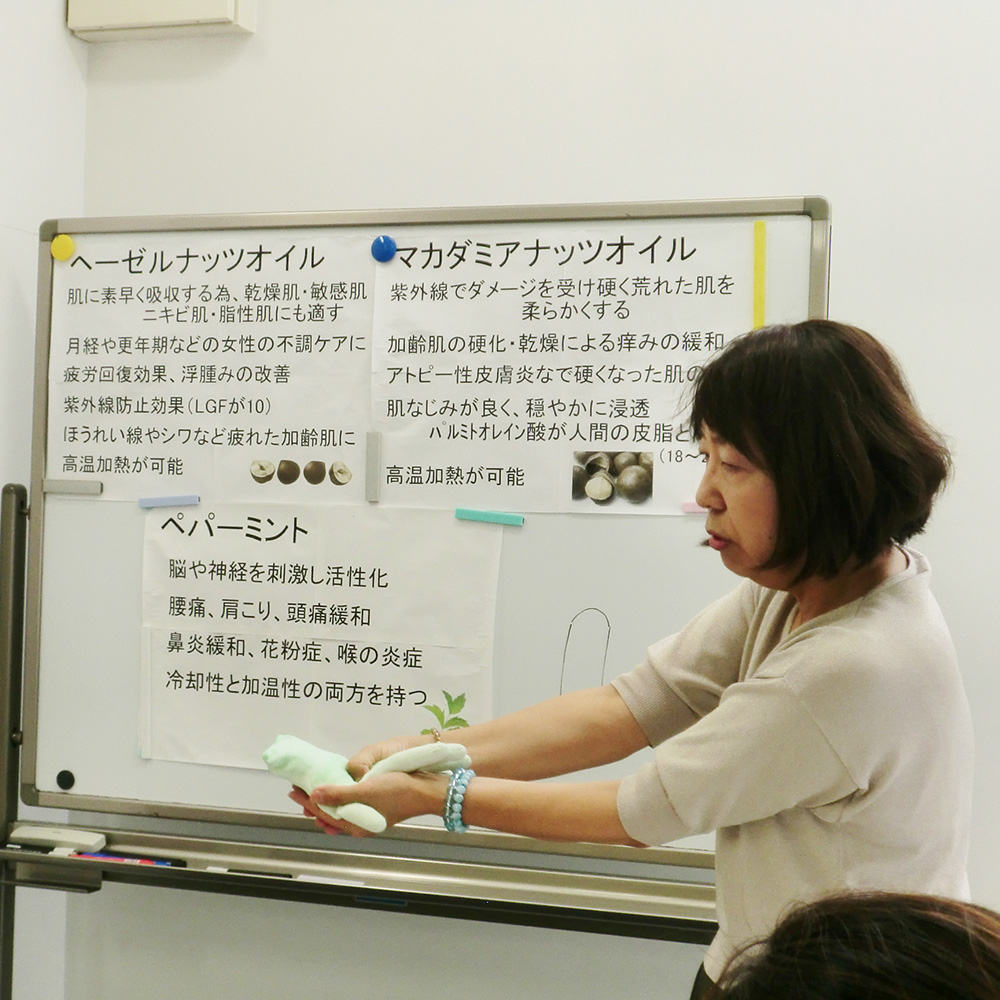 ヘーゼルナッツオイル
肌に素早く吸収する為、乾燥肌・敏感肌
ニキビ肌・脂性肌にも適す
月経や更年期などの女性の不調ケアに
疲労回復効果、浮腫みの改善
紫外線防止効果（LGFが10）
ほうれい線やシワなど疲れた加齢肌に
高温加熱が可能
マカダミアナッツオイル
紫外線でダメージを受け硬く荒れた肌を
柔らかくする
加齢肌の硬化・乾燥による痒みの緩和
アトピー性皮膚炎なで硬くなった肌の
肌なじみが良く、穏やかに浸透
パルミトオレイン酸が人間の皮脂と
（18～2
高温加熱が可能
ペパーミント
脳や神経を刺激し活性化
腰痛、肩こり、頭痛緩和
鼻炎緩和、花粉症、喉の炎症
冷却性と加温性の両方を持つ